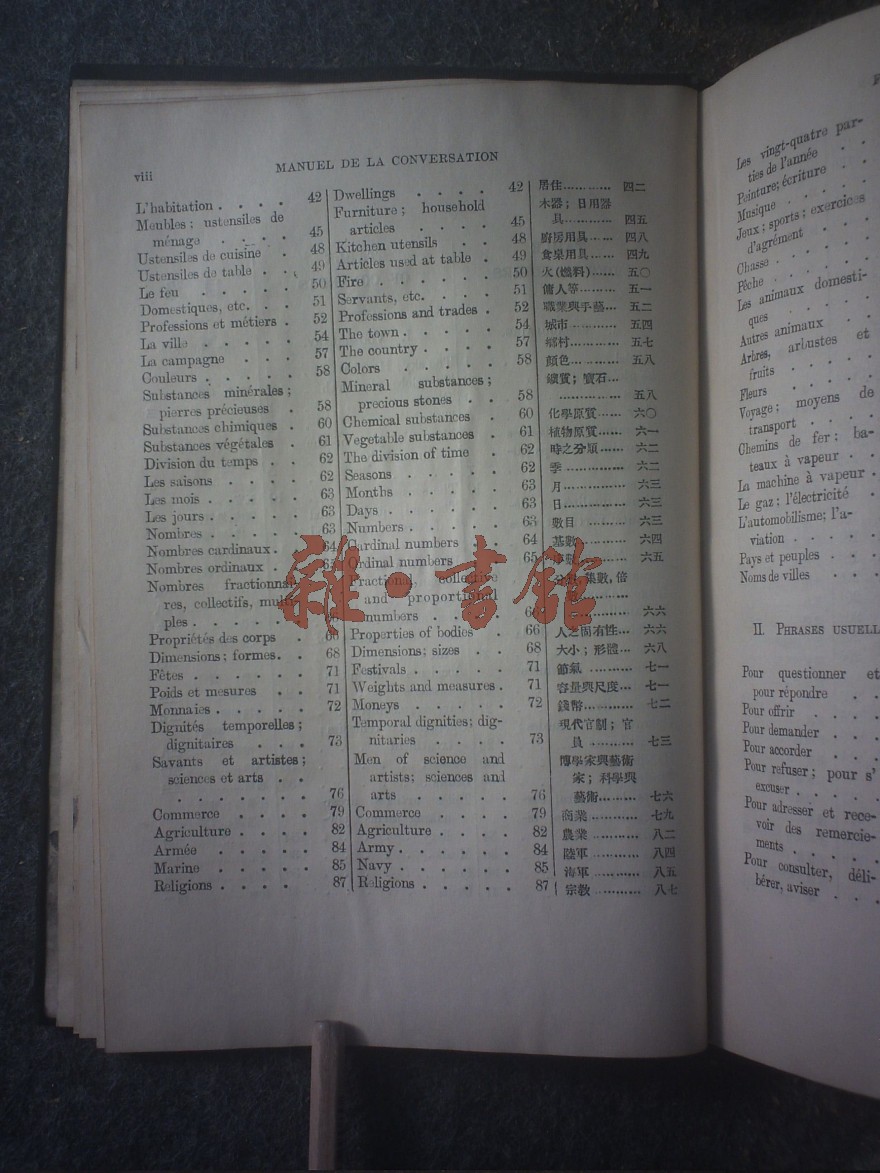 viii
MANUEL DE LA CONVERSATION
L'habitation . . . . 42
Meubles; ustensiles de
ménage . . . . 45
Ustensiles de cuisine . 48
Ustensiles de table . . 49
Le feu . . . . . 50
Domestiques, etc. . . . 51
Professions et métiers . 52
La ville . . . . . 54
La campagne . . . . 57
Couleurs . . . . . 58
Substances minérales;
pierres précieuses . 58
Substances chimiques . 60
Substances végétales . 61
Division du temps . . 62
Les saisons . . . . 62
Les mois . . . . . 63
Les jours . . . . . 63
Nombres . . . . . 63
Nombres cardinaux . . 64
Nombres ordinaux . .
Nombres fractionnai-
res, collectifs, multi-
ples . . . .
Propriétés des corps . 66
Dimensions; formes. . 68
Fêtes . . . . . . 71
Poids et mesures . . 71
Monnaies . . . . . 72
Dignités temporelles;
dignitaires . . . 73
Savants et artistes;
sciences et arts . .
. . . . . . 76
Commerce . . . . 79
Agriculture . . . . 82
Armée . . . . . 84
Marine . . . . . 85
Religions . . . . 87
Dwellings . . . . 42
Furniture; household
articles . . . . 45
Kitchen utensils . . 48
Articles used at table . 49
Fire . . . . . . 50
Servants, etc. . . . 51
Professions and trades . 52
The town . . . . . 54
The country . . . . 57
Colors . . . . . 58
Mineral substances;
precious stones . . 58
Chemical substances . 60
Vegetable substances . 61
The division of time . 62
Seasons . . . . . 62
Months . . . . . 63
Days . . . . . . 63
Numbers . . . . . 63
Cardinal numbers . . 64
Ordinal numbers . . 65
Fractional, collective
and proportional
numbers . . . .
Properties of bodies . 66
Dimensions; sizes . . 68
Festivals . . . . . 71
Weights and measures . 71
Moneys . . . . . 72
Temporal dignities; dig-
nitaries . . . . 73
Men of science and
artists; sciences and
arts . . . . . 76
Commerce . . . . 79
Agriculture . . . . 82
Army . . . . . . 84
Navy . . . . . . 85
Religions . . . . . 87
居住………… 四二
木器; 日用器
具…… 四五
廚房用具…… 四八
食桌用具…… 四九
火(燃料)…… 五〇
傭人等……… 五一
職業與手藝… 五二
城市………… 五四
鄉村………… 五七
顏色………… 五八
鑛質; 寶石…
………… 五八
化學原質…… 六〇
植物原質…… 六一
時之分類…… 六二
季…………… 六二
月…………… 六三
日…………… 六三
數目………… 六三
基數………… 六四
數………… 六五
集數, 倍
……… 六六
人之固有性… 六六
大小; 形體… 六八
節氣………… 七一
容量與尺度… 七一
錢幣………… 七二
現代官制; 官
員……… 七三
博學家與藝術
家; 科學與
藝術…… 七六
商業………… 七九
農業………… 八二
陸軍………… 八四
海軍………… 八五
宗教………… 八七
雜·書館
Les vingt-quatre par-
ties de l'année . .
Peinture; écriture . .
Musique . . . .
Jeux; sports; exercices
d'agrément . . .
Chasse . . . . .
Pêche . . . . .
Les animaux domesti-
ques . . . . .
Autres animaux . .
Arbres, arbustes et
fruits . . . . .
Fleurs . . . . .
Voyage; moyens de
transport . . . .
Chemins de fer; ba-
teaux à vapeur . .
La machine à vapeur .
Le gaz; l'électricité .
L'automobilisme; l'a-
viation . . . . .
Pays et peuples . . .
Noms de villes . . .
II. PHRASES USUELL
Pour questionner et
pour répondre . .
Pour offrir . . . .
Pour demander . . .
Pour accorder . . .
Pour refuser; pour s'
excuser . . . . .
Pour adresser et rece-
voir des remercie-
ments . . . . .
Pour consulter, déli-
bérer, aviser . . .